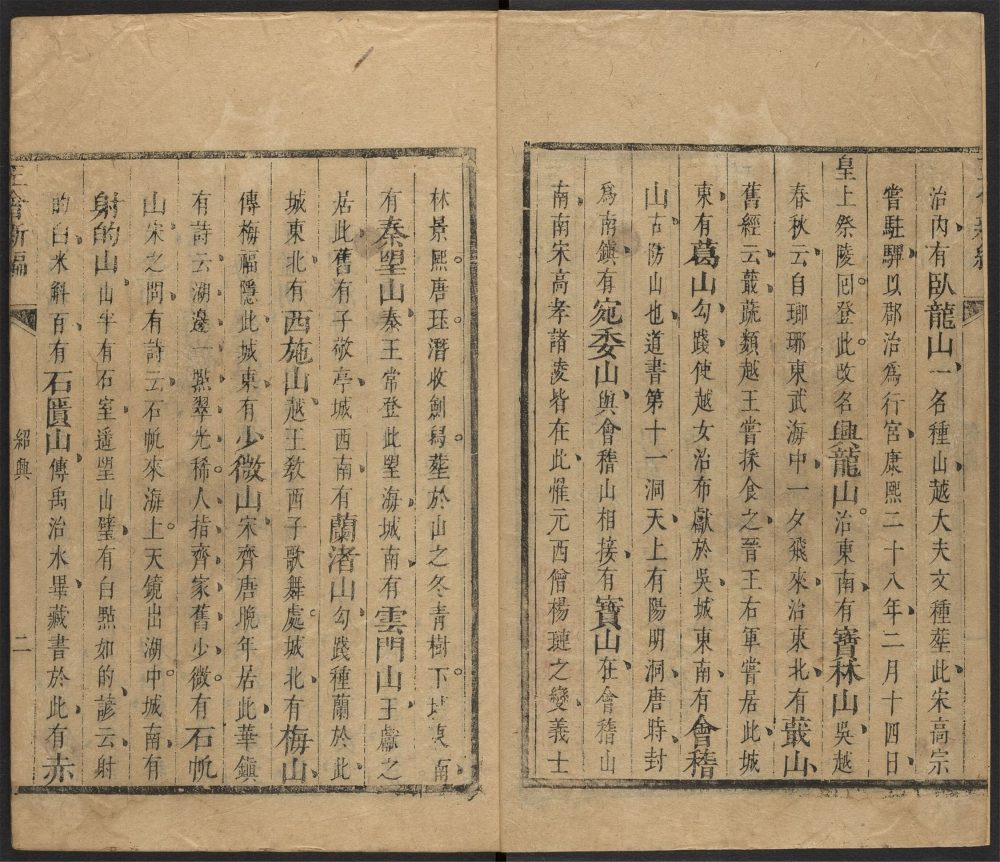 治內有臥龍山一名種山越大夫文種塟此宋高宗
嘗駐驆以郡治爲行宮康熙二十八年二月十四日
皇上祭陵囘登此改名興龍山治東南有寳林山吳越
春秋云自瑯琊東武海中一夕飛來治東北有蕺山
舊經云蕺蔬類越王嘗採食之晉王右軍嘗居此城
東有葛山勾踐使越女治布獻於吳城東南有會稽
山古防山也道書第十一洞天上有陽明洞唐時封
爲南鎭有宛委山與會稽山相接有寳山在會稽山
南南宋高孝諸凌皆在此惟元西僧楊璉之變義士
林景熙唐珏潛收劍舄塟於山之冬青樹下城東南
有秦望山秦王常登此望海城南有雲門山王獻之
居此舊有子敬亭城西南有蘭渚山勾踐種蘭於此
城東北有西施山越王敎西子歌舞處城北有梅山
傳梅福隱此城東有少微山宋齊唐晚年居此華鎭
有詩云湖邊一㸃翠光稀人指齊家舊少微有石帆
山宋之問有詩云石帆來海上天鏡出湖中城南有
射的山山半有石室遥望山壁有白㸃如的諺云射
的白米斛百有石匱山傳禹治水畢藏書於此有赤
新編
紹興
二